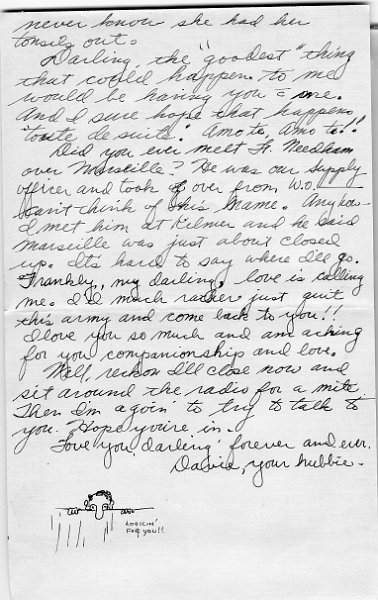 never know she had her
tonsils out.
Darling, the "goodest" thing
that could happen to me
would be having you & me.
And I sure hope that happens
"toute de suite." Amo te, Amo te!!
Did you ever meet Lt. Needham
over Marseille? He was our supply
officer and took over from W.O.
I can't think of his name. Anyhow
I met him at Kilmer and he said
Marseille was just about closed
up. It's hard to say where I'll go.
Frankly, my darling, love is calling
me. I'd much rather just quit
this army and come back to you!!
I love you so much and am aching
for you companionship and love.
Well, reckon I'll close now and
sit around the radio for a mite.
Then I'm agoin' to try to talk to
you. Hope you're in.
Love you, darling forever and ever.
David, your hubbie.
LOOKIN'
FOR YOU!!